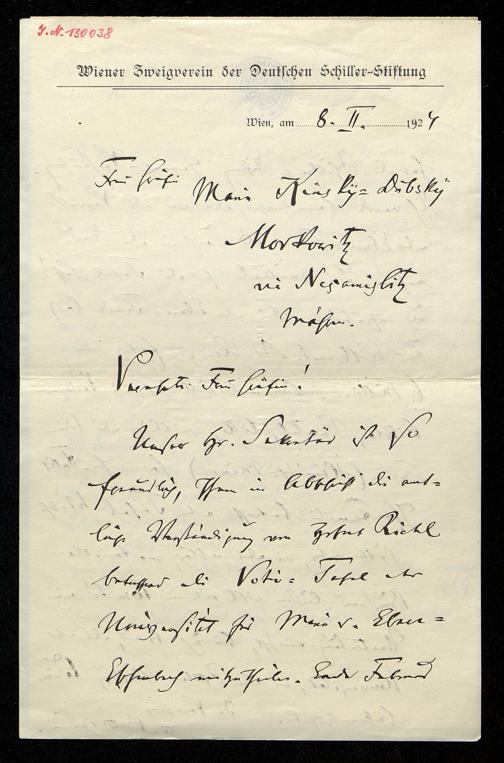 J.N. 130038
Wiener Zweigverein der Deutschen Schiller-Stiftung
Wien, am 8. II. 1924
Frau Gräfin
Marie Kinsky= Dubsky
Morkowitz
Nezamislitz
Mähren.
Verehrte Frau Gräfin!
Unser Hr. Sekretär ist so
freundlich, Ihnen in Abschrift die
Verständigung von Hofrat
betreffend die Tafel der
Universität für Marie v. Ebner=
Eschenbach mitzutheilen. Ende Februar